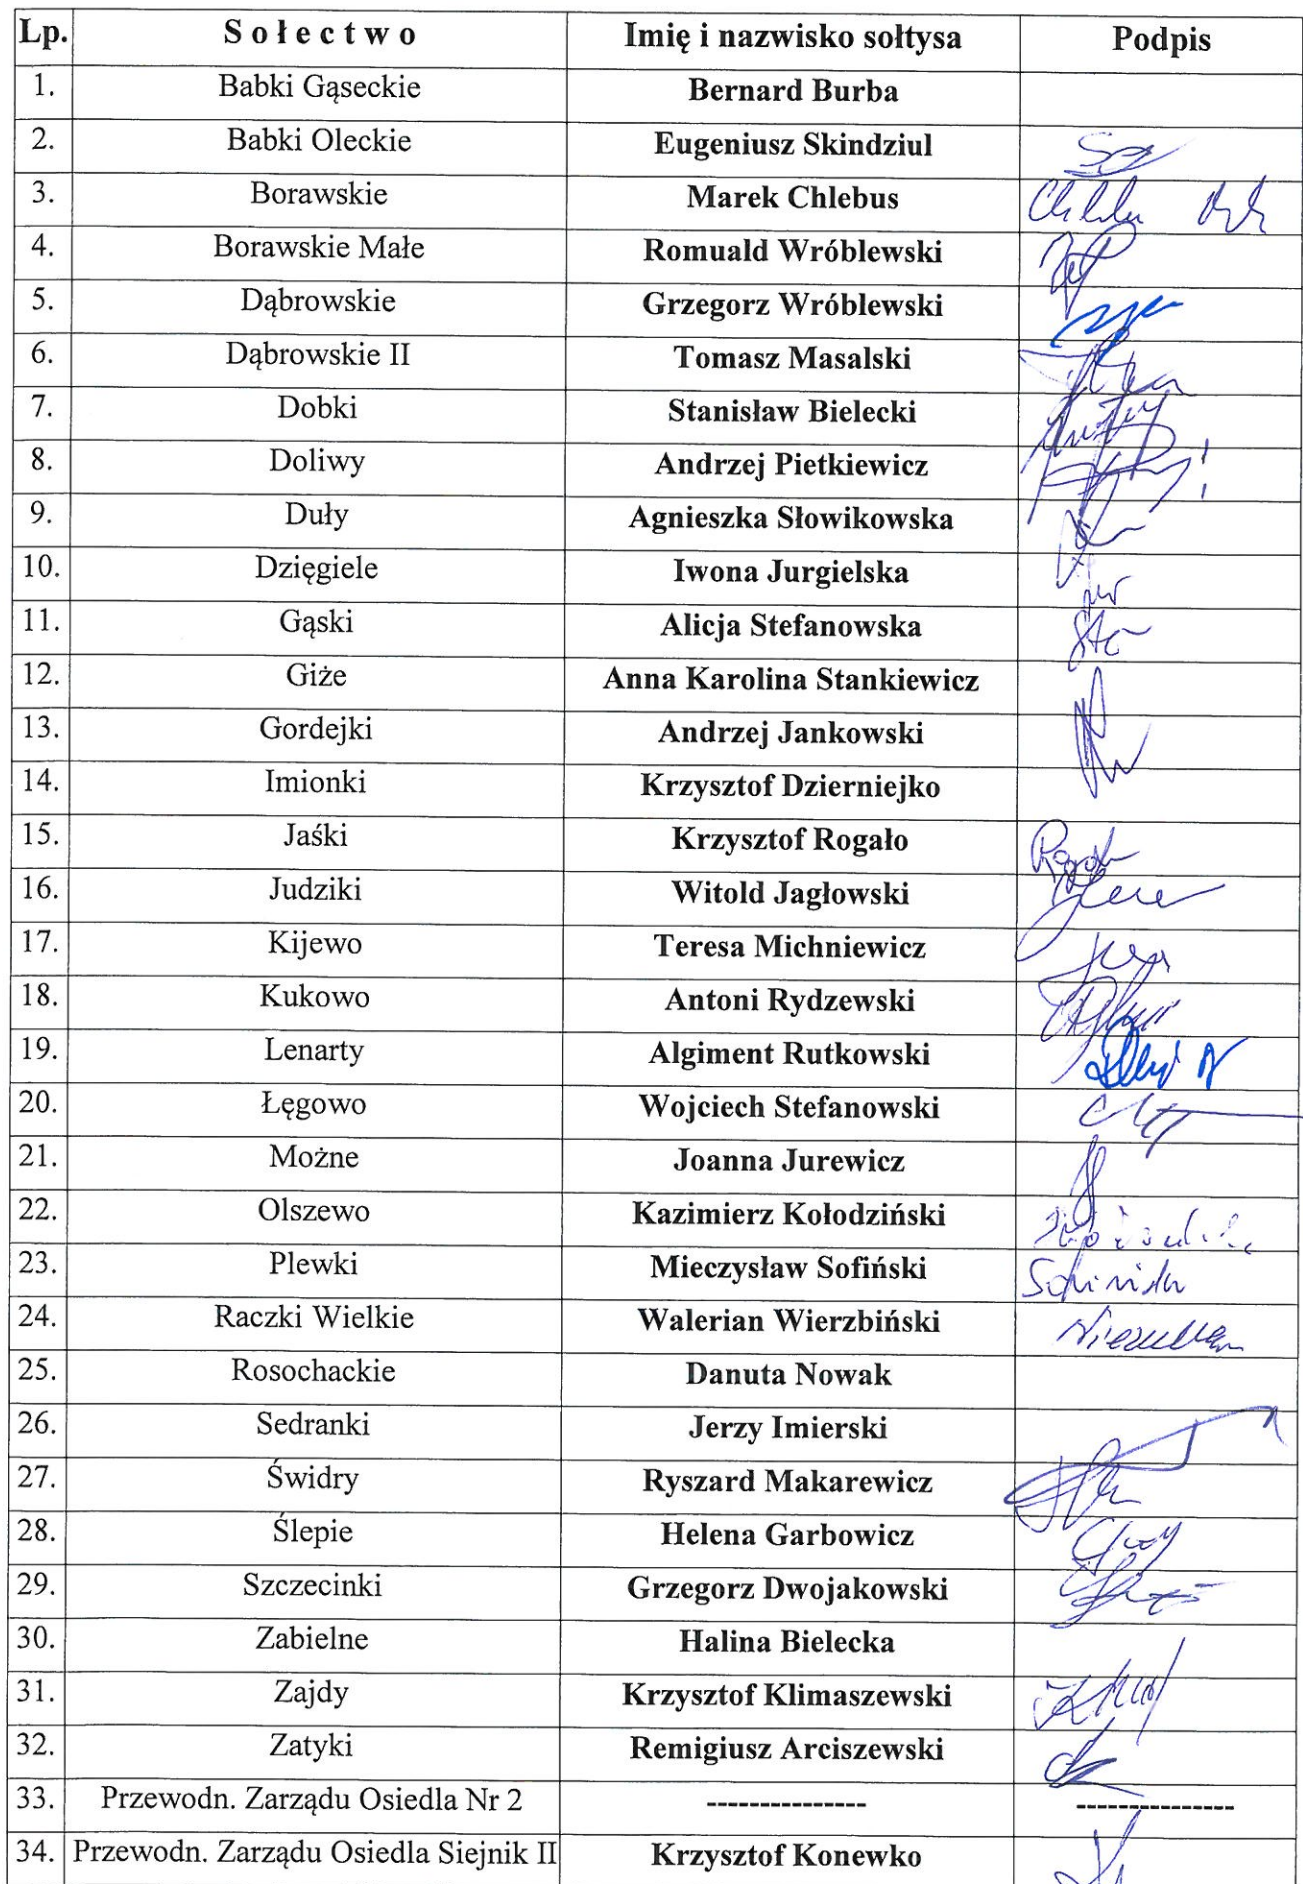 Lp. Sołectwo Imię i nazwisko sołtysa Podpis
1. Babki Gąseckie Bernard Burba
2. Babki Oleckie Eugeniusz Skindziul
3. Borawskie Marek Chlebus
4. Borawskie Małe Romuald Wróblewski
5. Dąbrowskie Grzegorz Wróblewski
6. Dąbrowskie II Tomasz Masalski
7. Dobki Stanisław Bielecki
8. Doliwy Andrzej Pietkiewicz
9. Duły Agnieszka Słowikowska
10. Dzięgiele Iwona Jurgielska
11. Gąski Alicja Stefanowska
12. Giże Anna Karolina Stankiewicz
13. Gordejki Andrzej Jankowski
14. Imionki Krzysztof Dzierniejko
15. Jaśki Krzysztof Rogało
16. Judziki Witold Jagłowski
17. Kijewo Teresa Michniewicz
18. Kukowo Antoni Rydzewski
19. Lenarty Algiment Rutkowski
20. Łęgowo Wojciech Stefanowski
21. Możne Joanna Jurewicz
22. Olszewo Kazimierz Kołodziński
23. Plewki Mieczysław Sofiński
24. Raczki Wielkie Walerian Wierzbiński
25. Rosochackie Danuta Nowak
26. Sedranki Jerzy Imierski
27. Świdry Ryszard Makarewicz
28. Ślepie Helena Garbowicz
29. Szczecinki Grzegorz Dwojakowski
30. Zabielne Halina Bielecka
31. Zajdy Krzysztof Klimaszewski
32. Zatyki Remigiusz Arciszewski
33. Przewodn. Zarządu Osiedla Nr 2 --------------- ---------------
34. Przewodn. Zarządu Osiedla Siejnik II Krzysztof Konewko